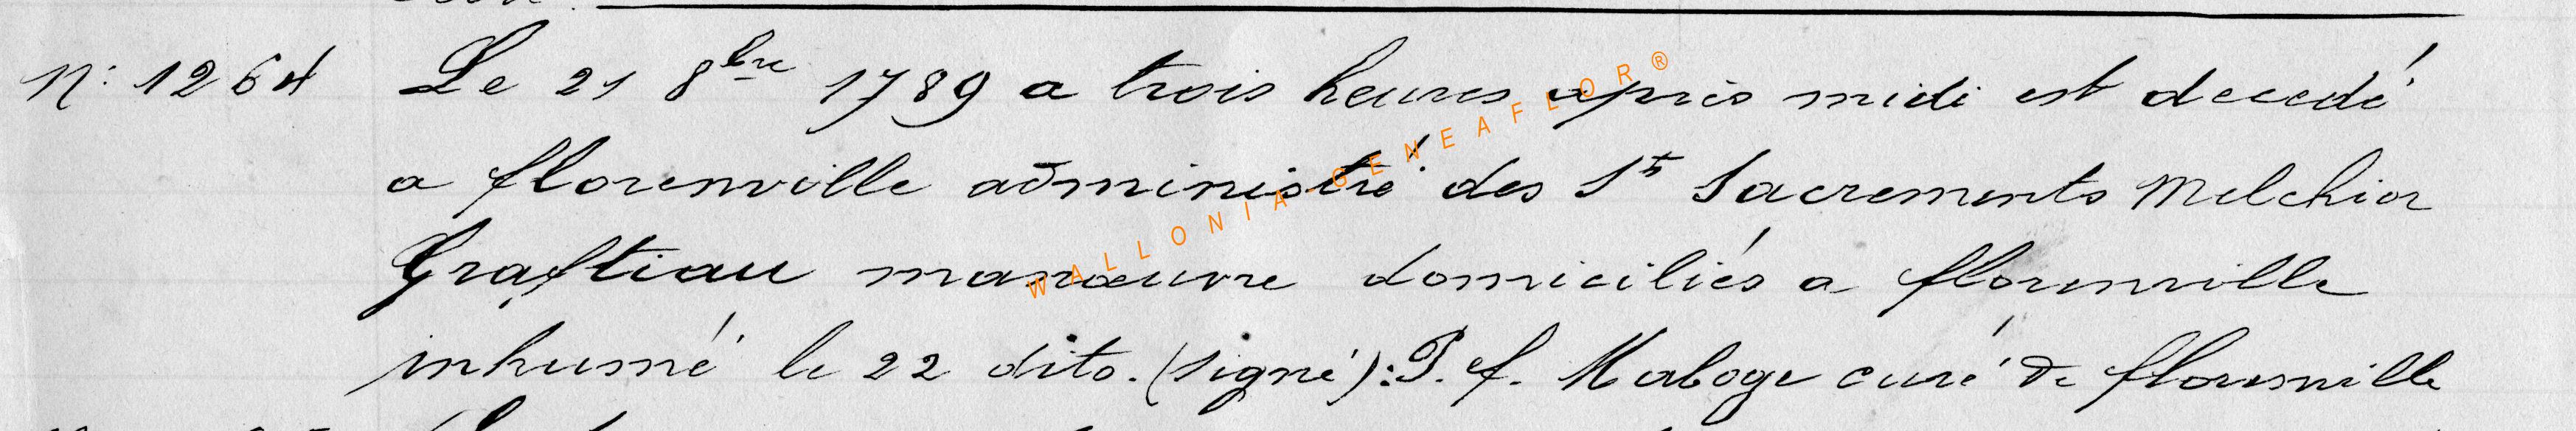 N: 1264 Le 21 8bre 1789 a trois heures après midi est decedé
a florenville administré des St Sacrements Melchior
Graftiau manœuvre domiciliés a florenville
inhumé le 22 dito. (signé): P. f. Maboge curé de florenville
WALLONIA GENEAFLOR®